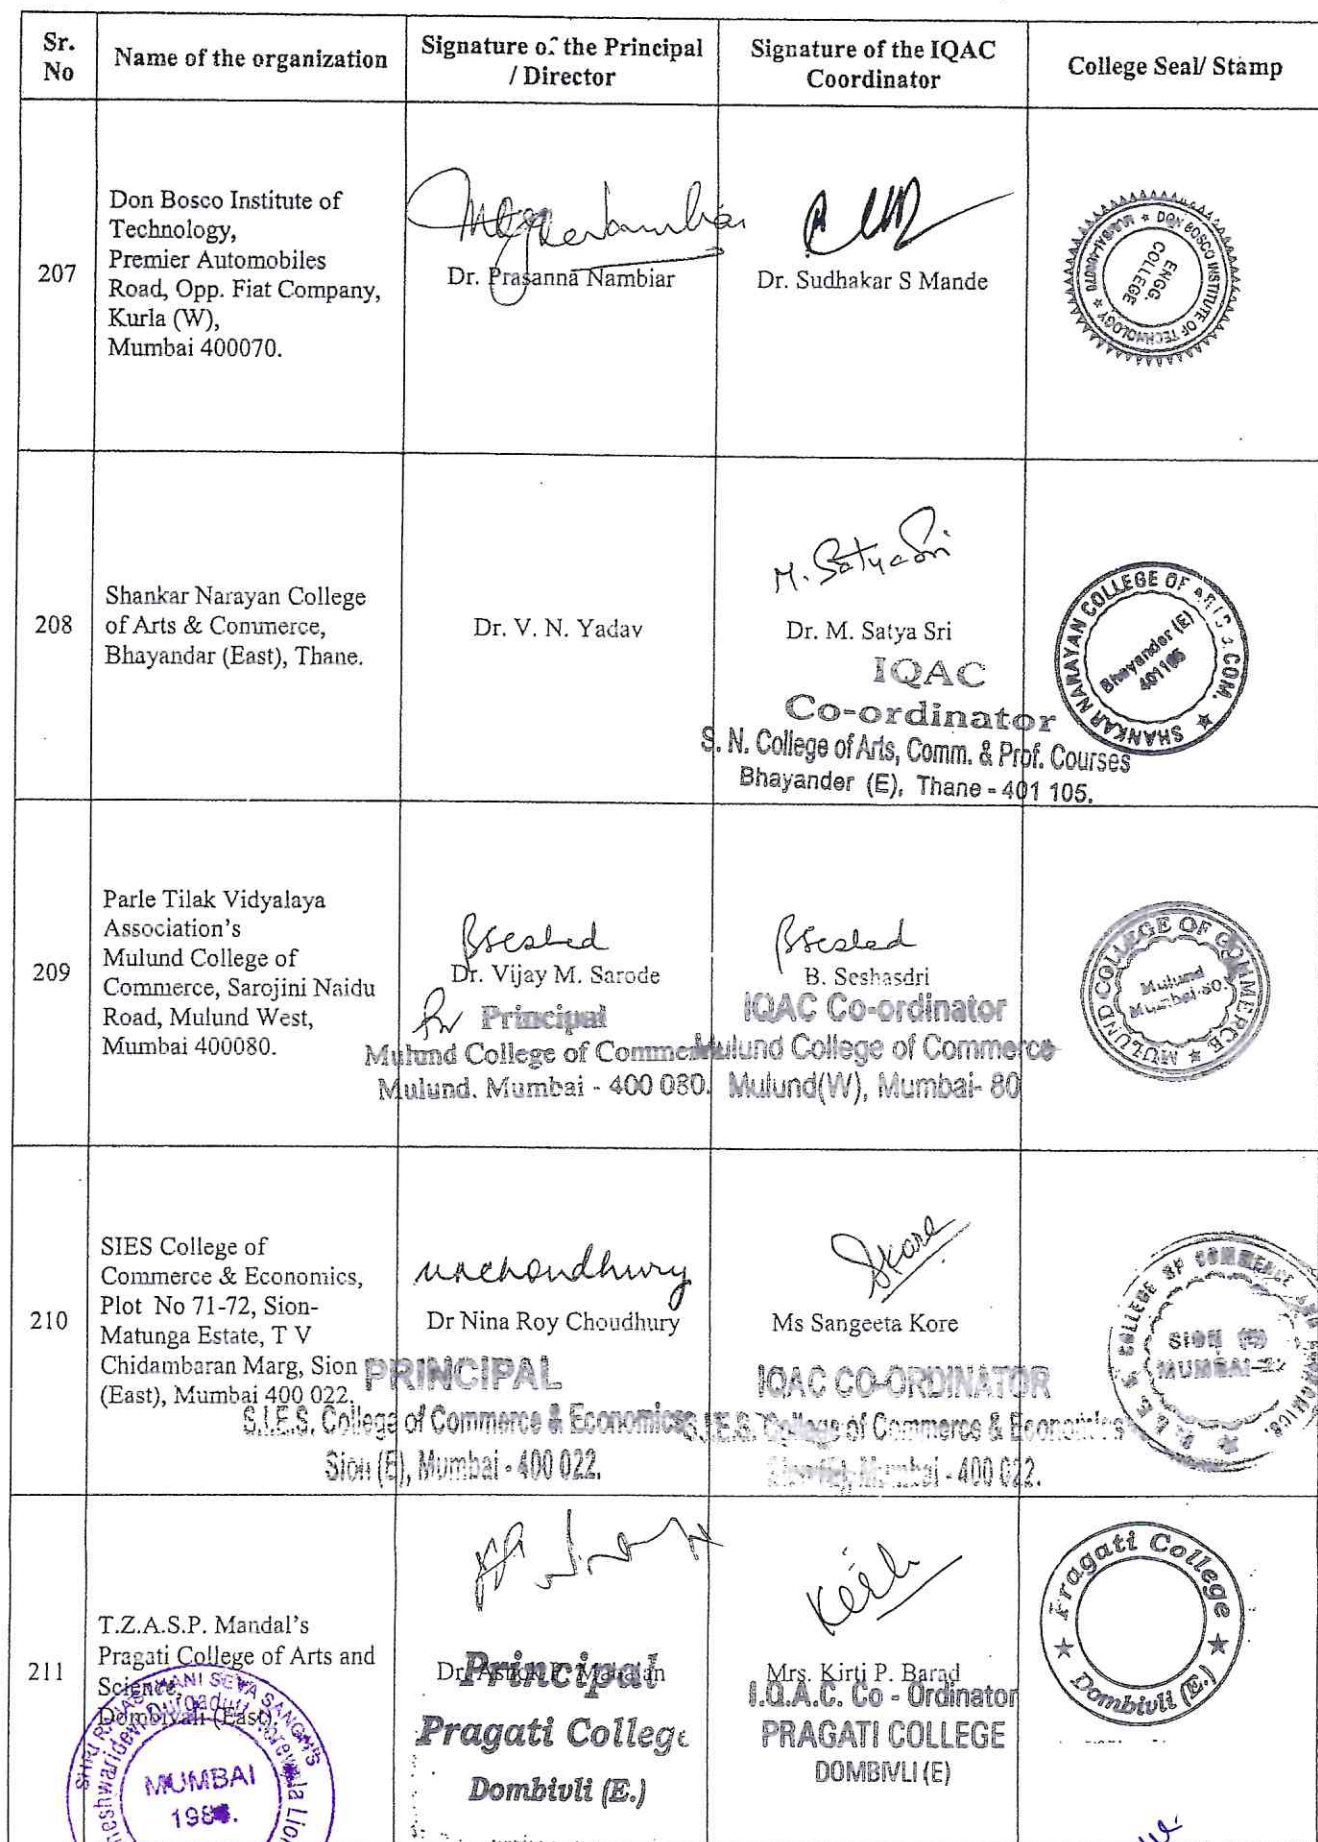 Sr.
No
Name of the organization
Signature of the Principal
/ Director
Signature of the IQAC
Coordinator
College Seal/ Stamp
207
Don Bosco Institute of
Technology,
Premier Automobiles
Road, Opp. Fiat Company,
Kurla (W),
Mumbai 400070.
Dr. Prasanna Nambiar
Dr. Sudhakar S Mande
DON BOSCO INSTITUTE OF TECHNOLOGY ★ MUMBAI-400070 ★
ENGG.
COLLEGE
208
Shankar Narayan College
of Arts & Commerce,
Bhayandar (East), Thane.
Dr. V. N. Yadav
M. Satya Sri
Dr. M. Satya Sri
IQAC
Co-ordinator
S. N. College of Arts, Comm. & Prof. Courses
Bhayander (E), Thane - 401 105.
SHANKAR NARAYAN COLLEGE OF ARTS & COM. ★
Bhayander (E)
401105
209
Parle Tilak Vidyalaya
Association's
Mulund College of
Commerce, Sarojini Naidu
Road, Mulund West,
Mumbai 400080.
Dr. Vijay M. Sarode
Principal
Mulund College of Commerce
Mulund. Mumbai - 400 080.
B. Seshasdri
IQAC Co-ordinator
Mulund College of Commerce
Mulund(W), Mumbai- 80
MULUND COLLEGE OF COMMERCE ★
Mulund
Mumbai-80.
210
SIES College of
Commerce & Economics,
Plot No 71-72, Sion-
Matunga Estate, T V
Chidambaran Marg, Sion
(East), Mumbai 400 022.
Dr Nina Roy Choudhury
PRINCIPAL
S.I.E.S. College of Commerce & Economics
Sion (E), Mumbai - 400 022.
Ms Sangeeta Kore
IQAC CO-ORDINATOR
S.I.E.S. College of Commerce & Economics
Sion (E), Mumbai - 400 022.
S. I. E. S. COLLEGE OF COMMERCE AND ECONOMICS. ★
SION (E)
MUMBAI-22
211
T.Z.A.S.P. Mandal's
Pragati College of Arts and
Science,
Dombivali (East).
Principal
Pragati College
Dombivli (E.)
Kirti
Mrs. Kirti P. Barad
I.Q.A.C. Co - Ordinator
PRAGATI COLLEGE
DOMBIVLI (E)
Pragati College
★ Dombivli (E.) ★
SHRI RAJASTHANI SEVA SANGH'S
MUMBAI